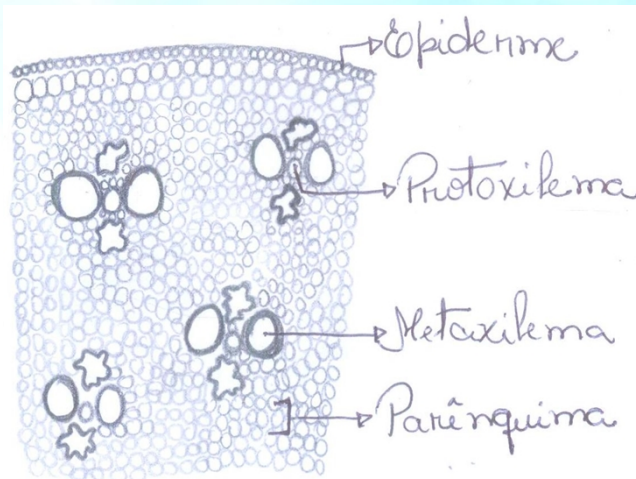 Epiderme
Protoxilema
Metaxilema
Parênquima